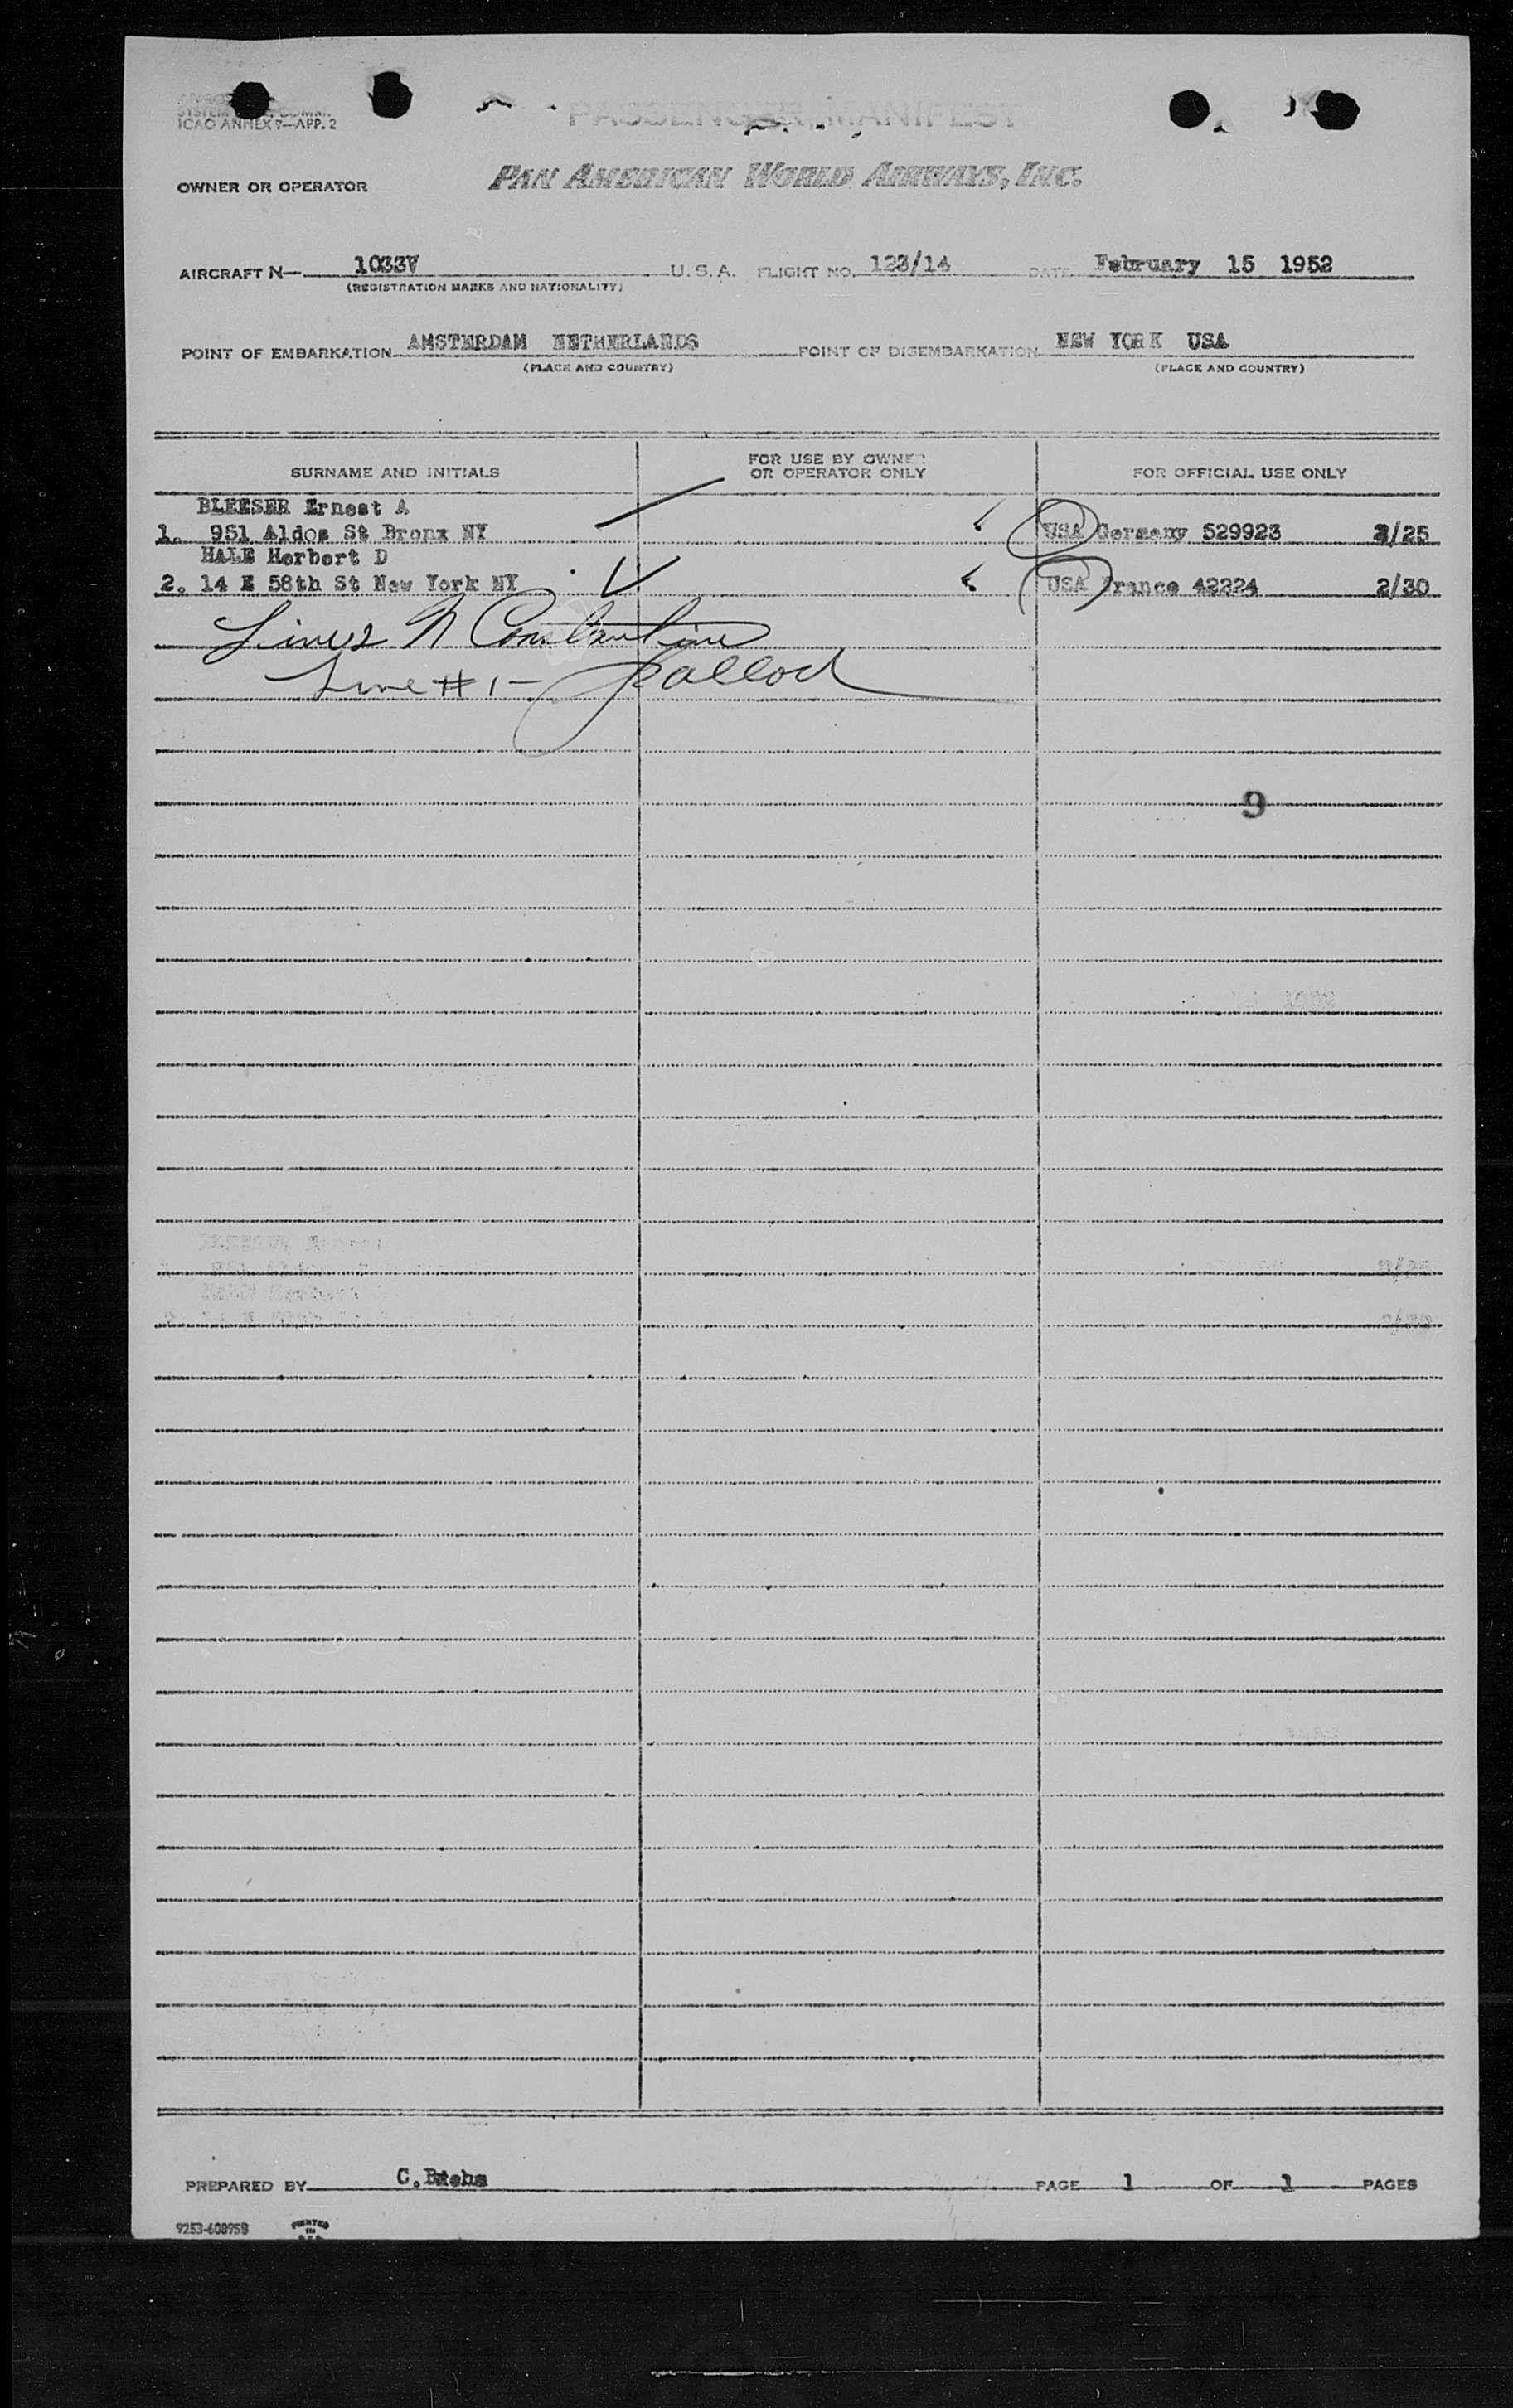 ICAO ANNEX 7—APP. 2
PASSENGER MANIFEST
OWNER OR OPERATOR PAN AMERICAN WORLD AIRWAYS, INC.
AIRCRAFT N— 1033V U.S.A. FLIGHT NO. 123/14 DATE February 15 1952
(REGISTRATION MARKS AND NATIONALITY)
POINT OF EMBARKATION AMSTERDAM NETHERLANDS POINT OF DISEMBARKATION NEW YORK USA
(PLACE AND COUNTRY) (PLACE AND COUNTRY)
SURNAME AND INITIALS FOR USE BY OWNER OR OPERATOR ONLY FOR OFFICIAL USE ONLY
BLEESER Ernest A
1. 951 Aldos St Bronx NY USA Germany 529923 /25
HALE Herbert D
2. 14 E 58th St New York NY USA France 42224 2/30
Line 2 N Constantine
Line # 1 -
9
PREPARED BY C. PAGE 1 OF 1 PAGES
9253-608958 PRINTED IN